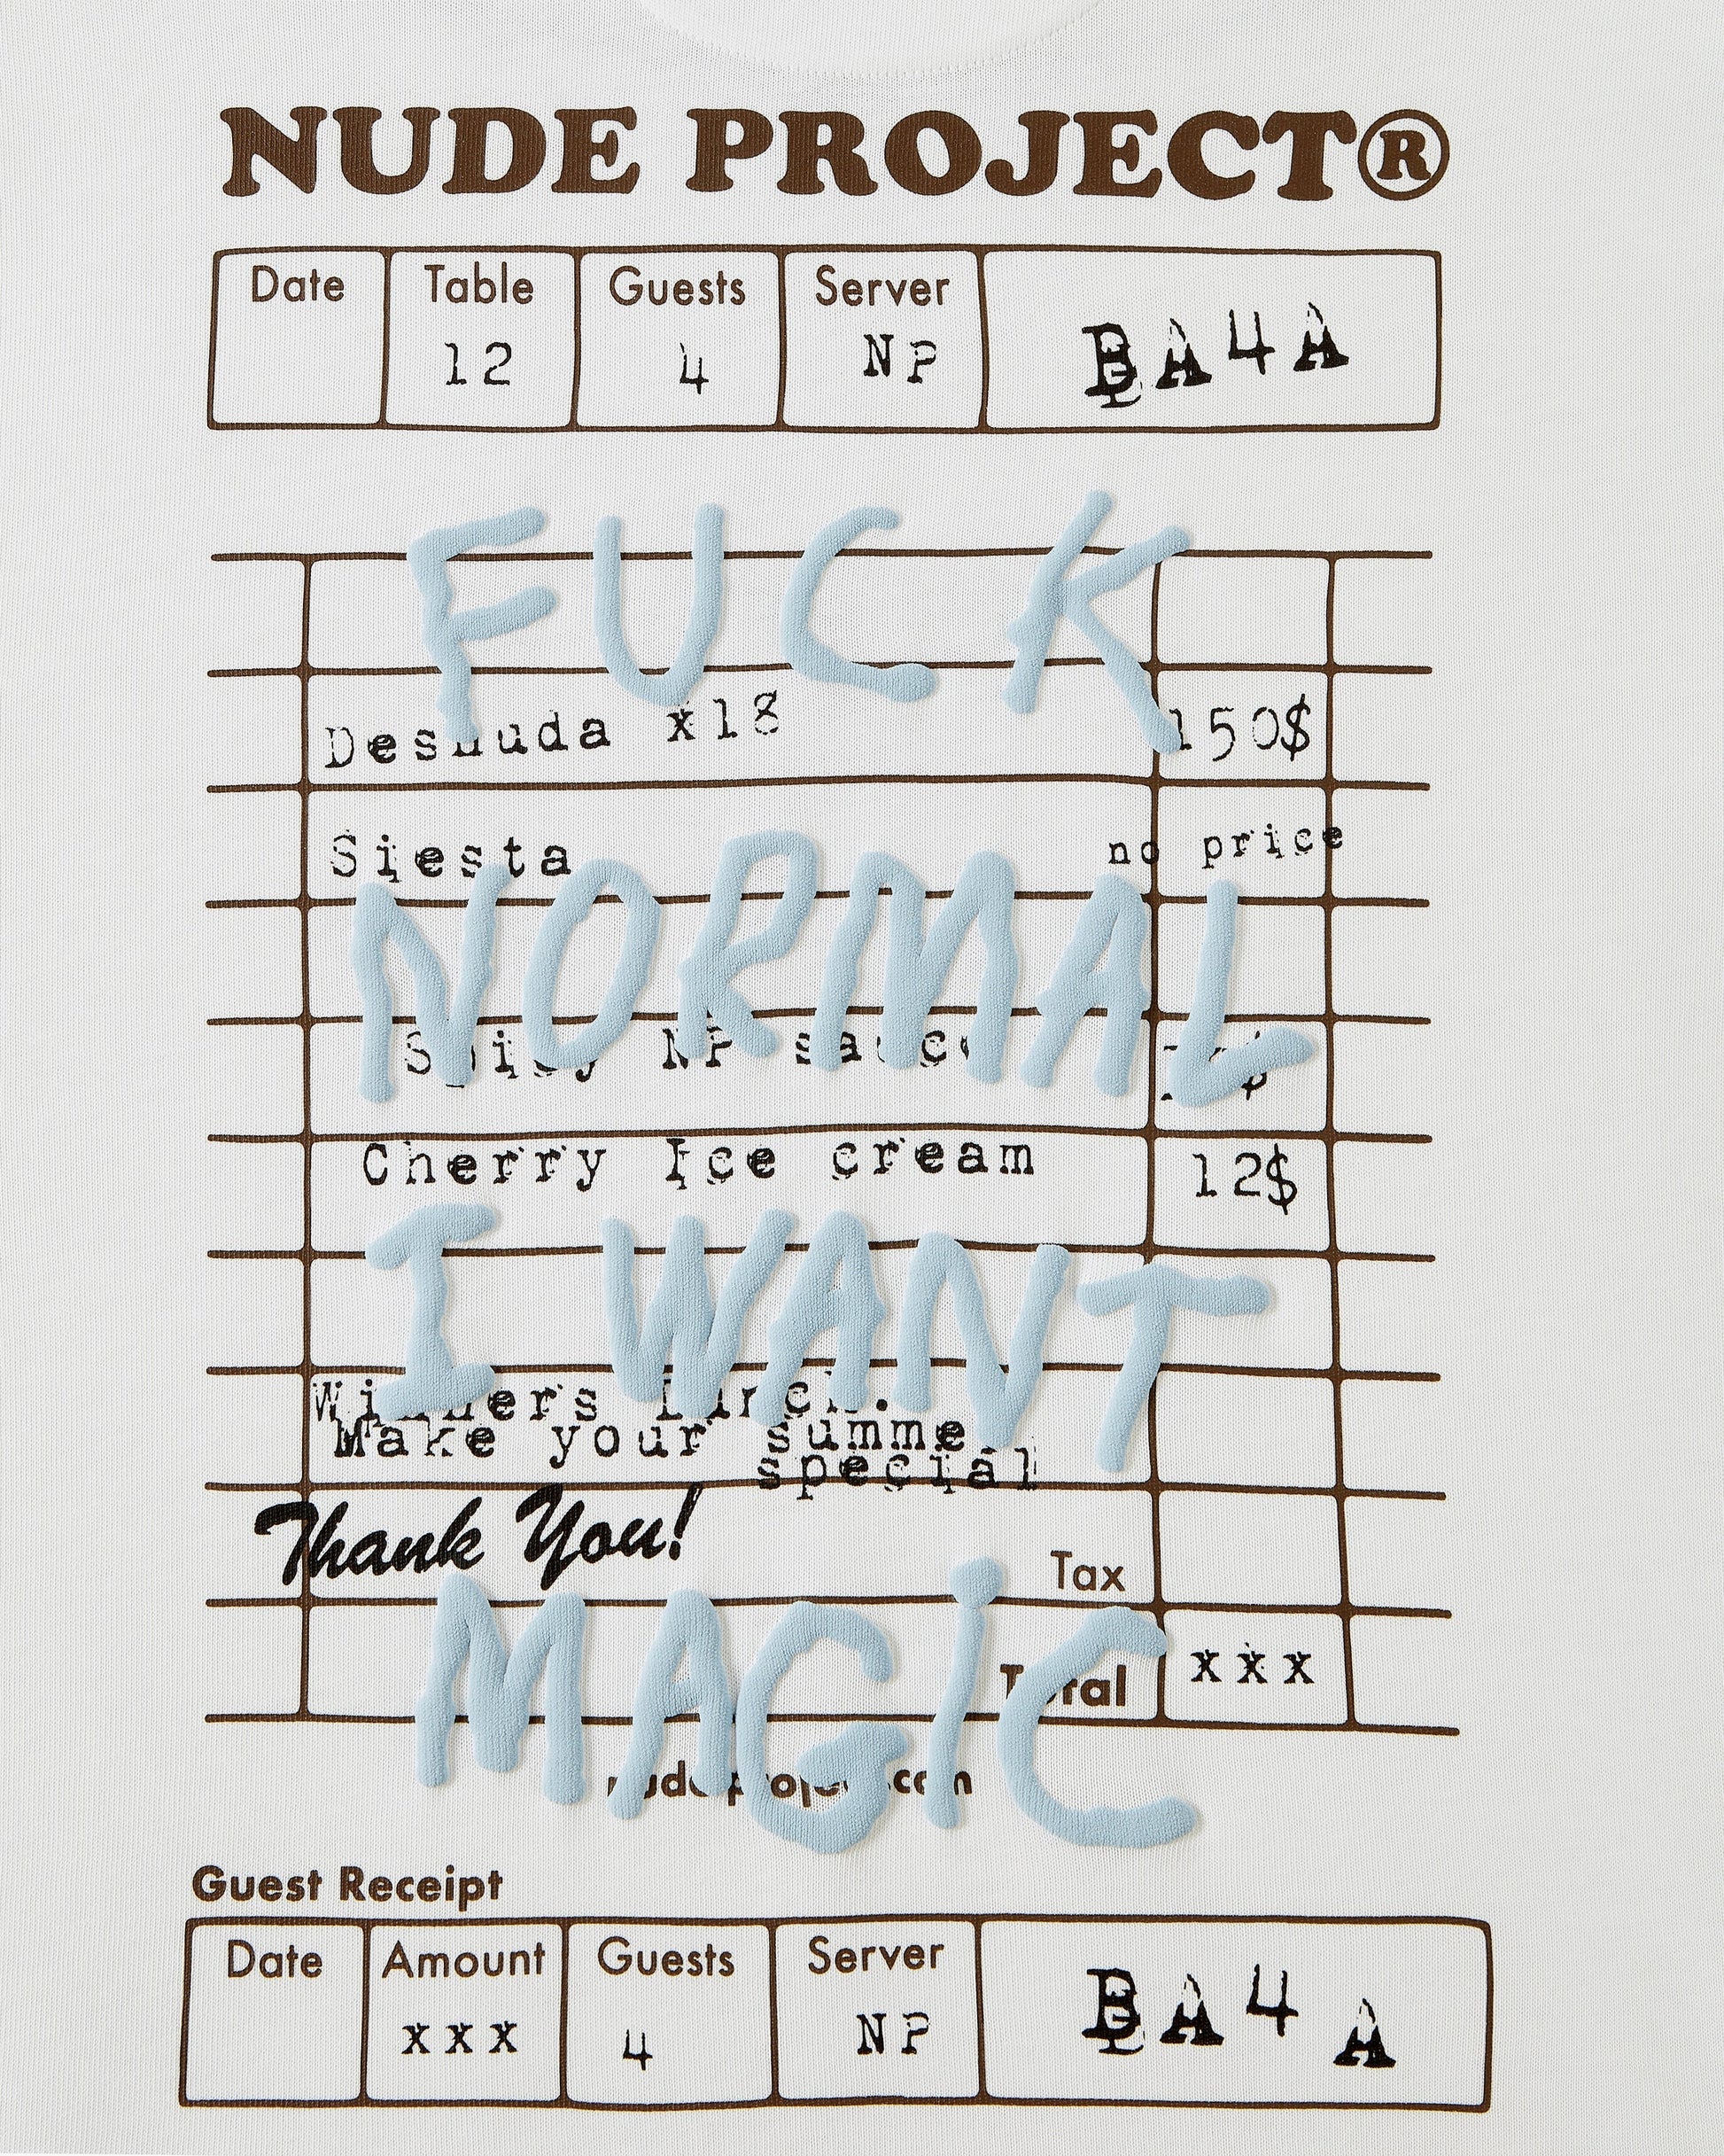 NUDE PROJECT®
Date Table Guests Server
12 4 NP BA4A
FUCK
Desnuda x18 150$
Siesta no price
NORMAL
Spicy NP sauce
Cherry Ice cream 12$
I WANT
Winners Lunch.
Make your summe
special
Thank You!
Tax
MAGiC
Total xxx
nudeproject.com
Guest Receipt
Date Amount Guests Server
xxx 4 NP BA4A